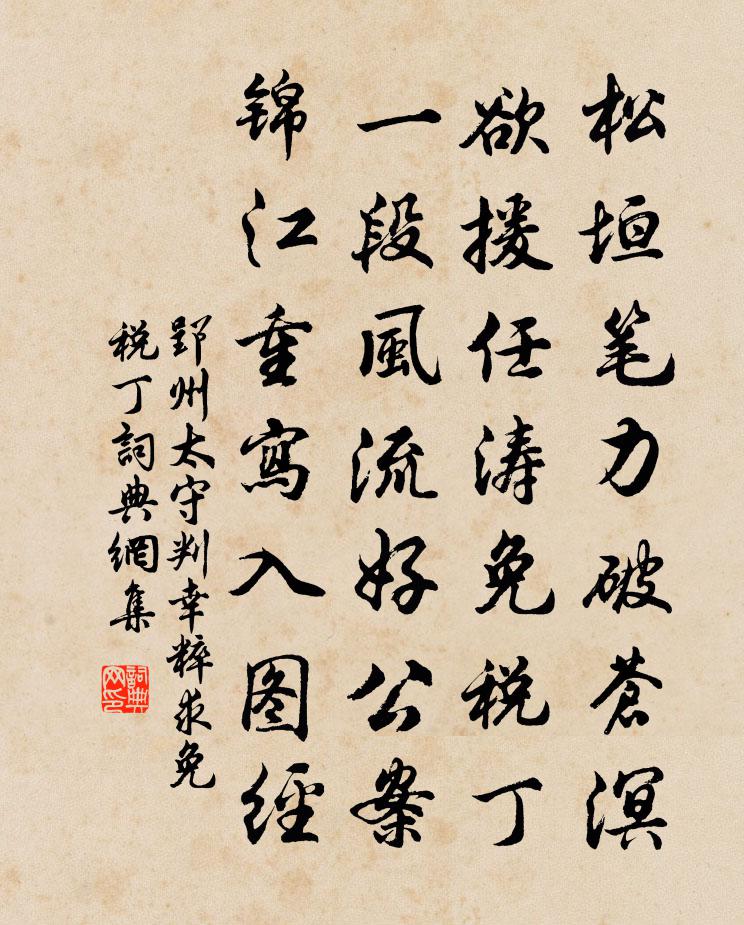 松垣笔力破蒼溟
欲援任涛免税丁
一段風流好公案
锦江重寫入图經
郢州太守判幸粹求免
税丁詞典網集
詞典网印